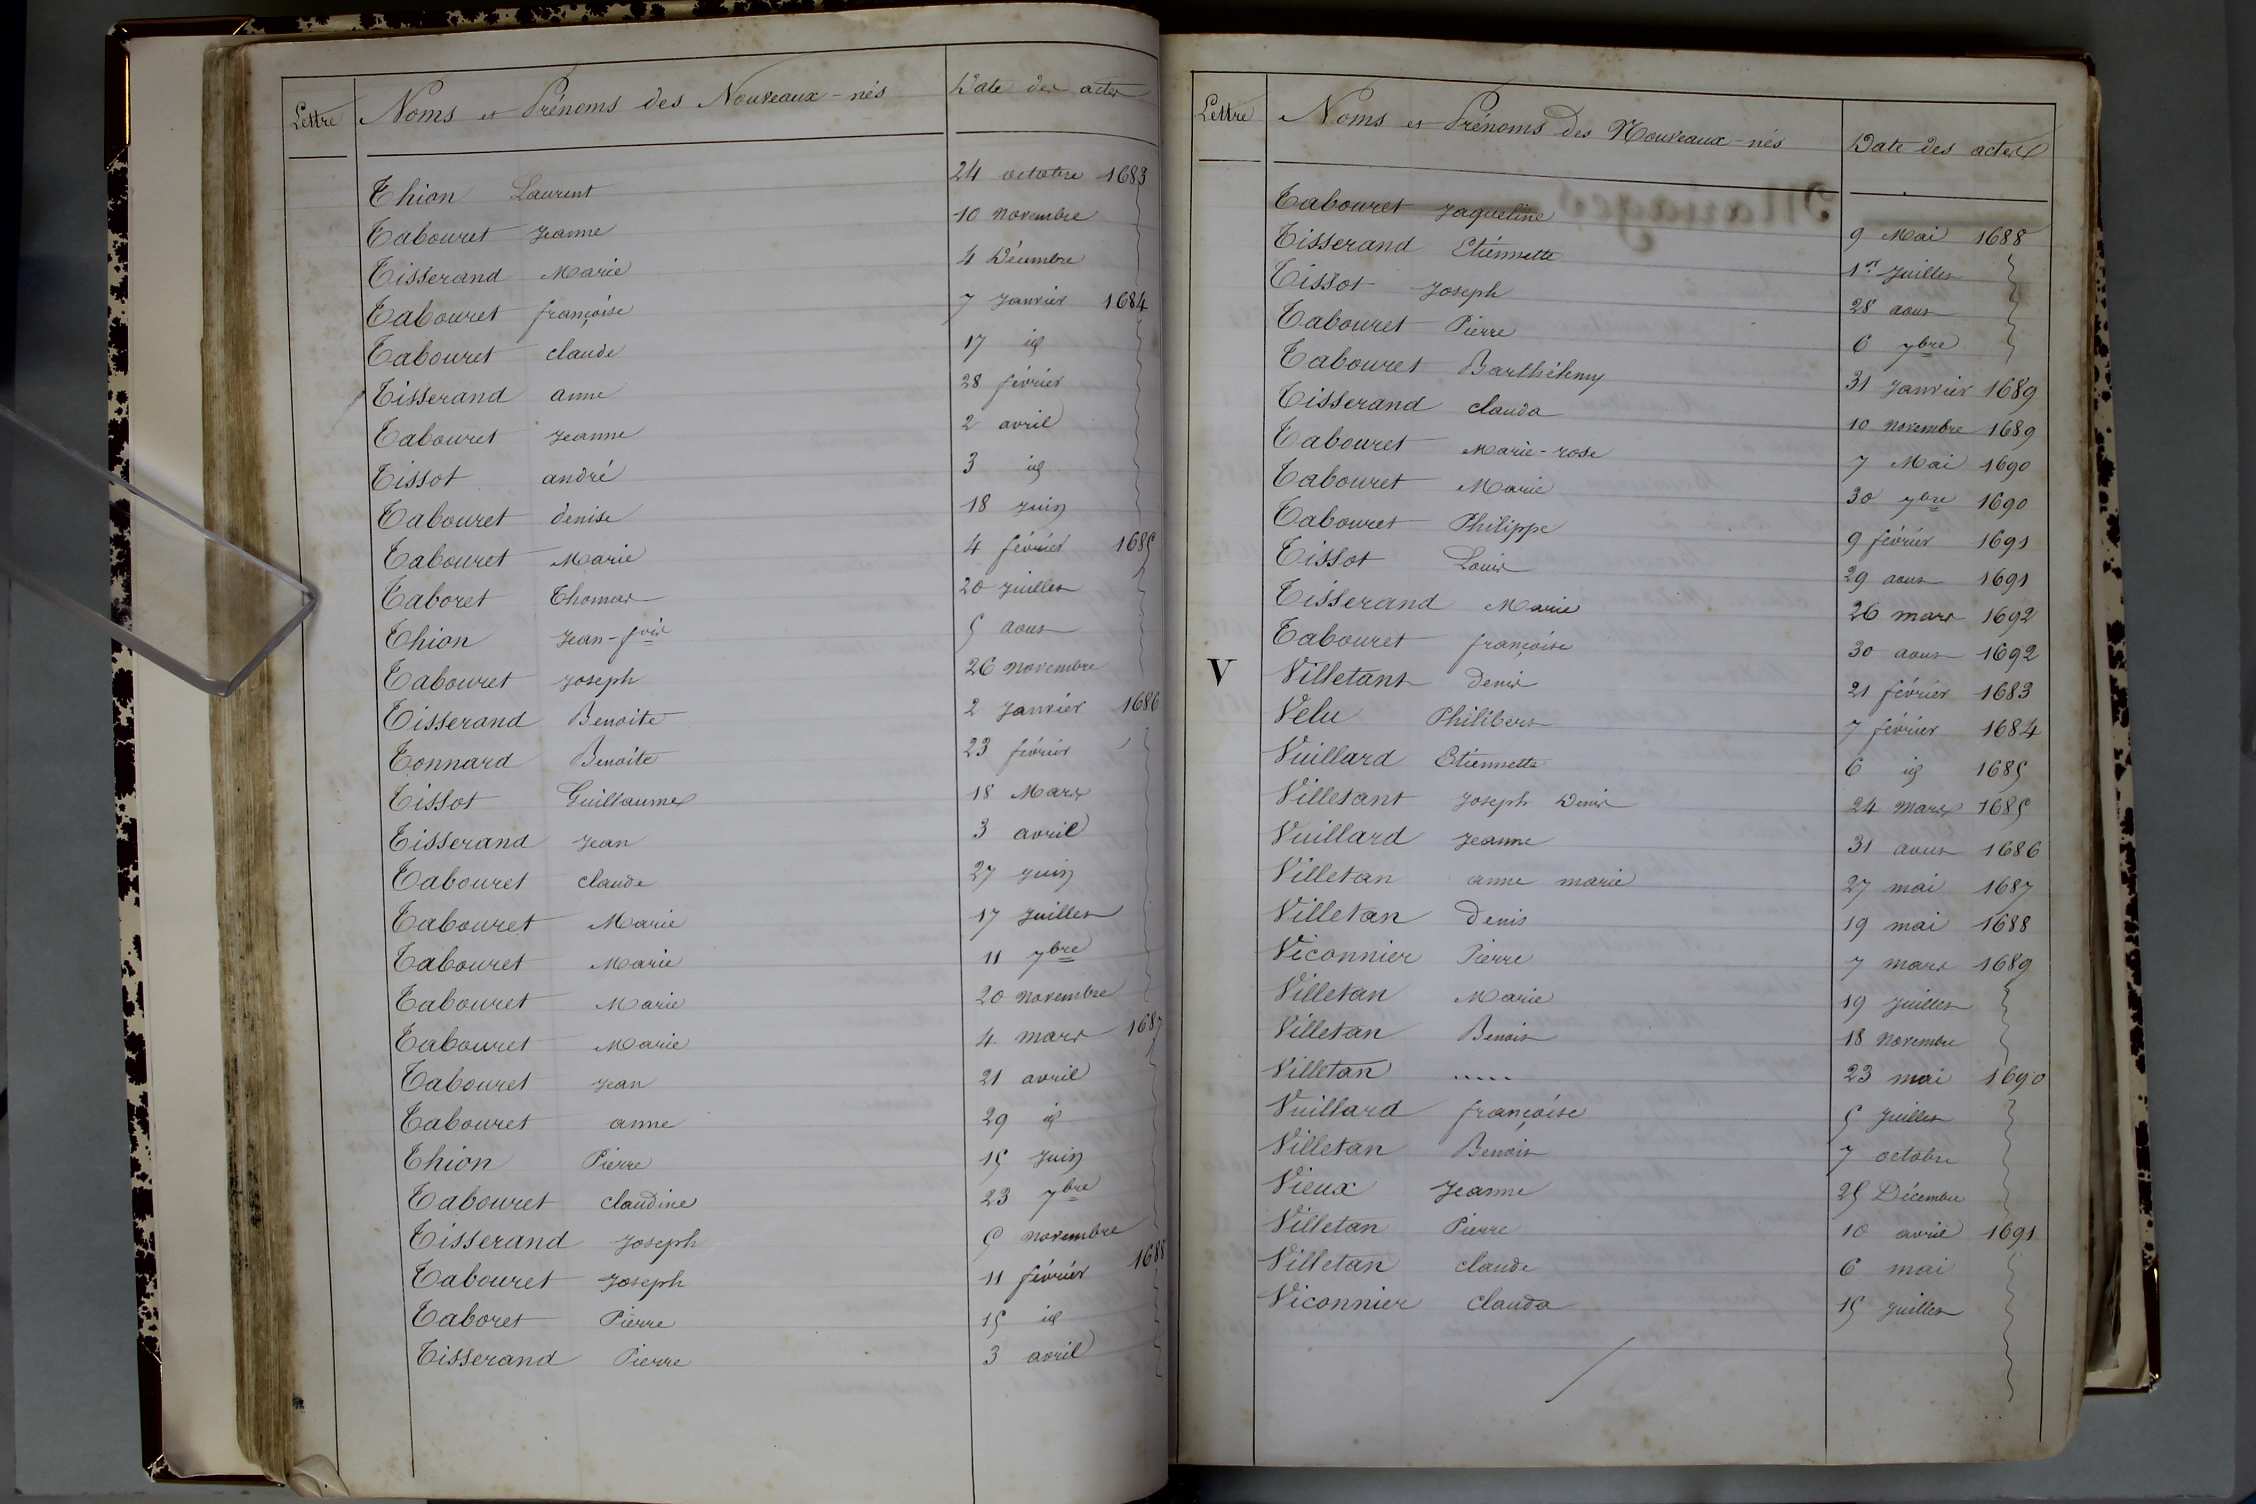 Lettre Noms et Prénoms des Nouveaux-nés Date des actes
Thion Laurent 24 octobre 1683
Tabouret Jeanne 10 novembre
Tisserand Marie 4 Décembre
Tabouret françoise 7 Janvier 1684
Tabouret claude 17 id
Tisserand anne 28 février
Tabouret Jeanne 2 avril
Tissot andré 3 id
Tabouret denise 18 Juin
Tabouret Marie 4 février 1685
Taboret Thomas 20 Juillet
Thion Jean-fois 5 aout
Tabouret Joseph 26 novembre
Tisserand Benoite 2 Janvier 1686
Tonnard Benoite 23 février
Tissot Guillaume 18 Mars
Tisserand Jean 3 avril
Tabouret claude 27 Juin
Tabouret Marie 17 Juillet
Tabouret Marie 11 7bre
Tabouret Marie 20 novembre
Tabouret Marie 4 mars 1687
Tabouret Jean 21 avril
Tabouret anne 29 id
Thion Pierre 15 Juin
Tabouret claudine 23 7bre
Tisserand Joseph 5 novembre
Tabouret Joseph 11 février 1688
Taboret Pierre 15 id
Tisserand Pierre 3 avril
Lettre Noms et Prénoms des Nouveaux-nés Date des actes
Tabouret Jaqueline 9 Mai 1688
Tisserand Etiennette 1er Juillet
Tissot Joseph 28 aout
Tabouret Pierre 6 7bre
Tabouret Barthélemy 31 Janvier 1689
Tisserand clauda 10 novembre 1689
Tabouret Marie-rose 7 Mai 1690
Tabouret Marie 30 7bre 1690
Tabouret Philippe 9 février 1691
Tissot Louis 29 aout 1691
Tisserand Marie 26 mars 1692
Tabouret françoise 30 aout 1692
V Villetant denis 21 février 1683
Velu Philibert 7 février 1684
Vuillard Etiennette 6 id 1685
Villetant Joseph Denis 24 Mars 1685
Vuillard Jeanne 31 aout 1686
Villetan anne marie 27 mai 1687
Villetan Denis 19 mai 1688
Viconnier Pierre 7 mars 1689
Villetan Marie 19 Juillet
Villetan Benoit 18 novembre
Villetan ..... 23 mai 1690
Vuillard françoise 5 Juillet
Villetan Benoit 7 octobre
Vieux Jeanne 25 Décembre
Villetan Pierre 10 avril 1691
Villetan claude 6 mai
Viconnier clauda 15 Juillet